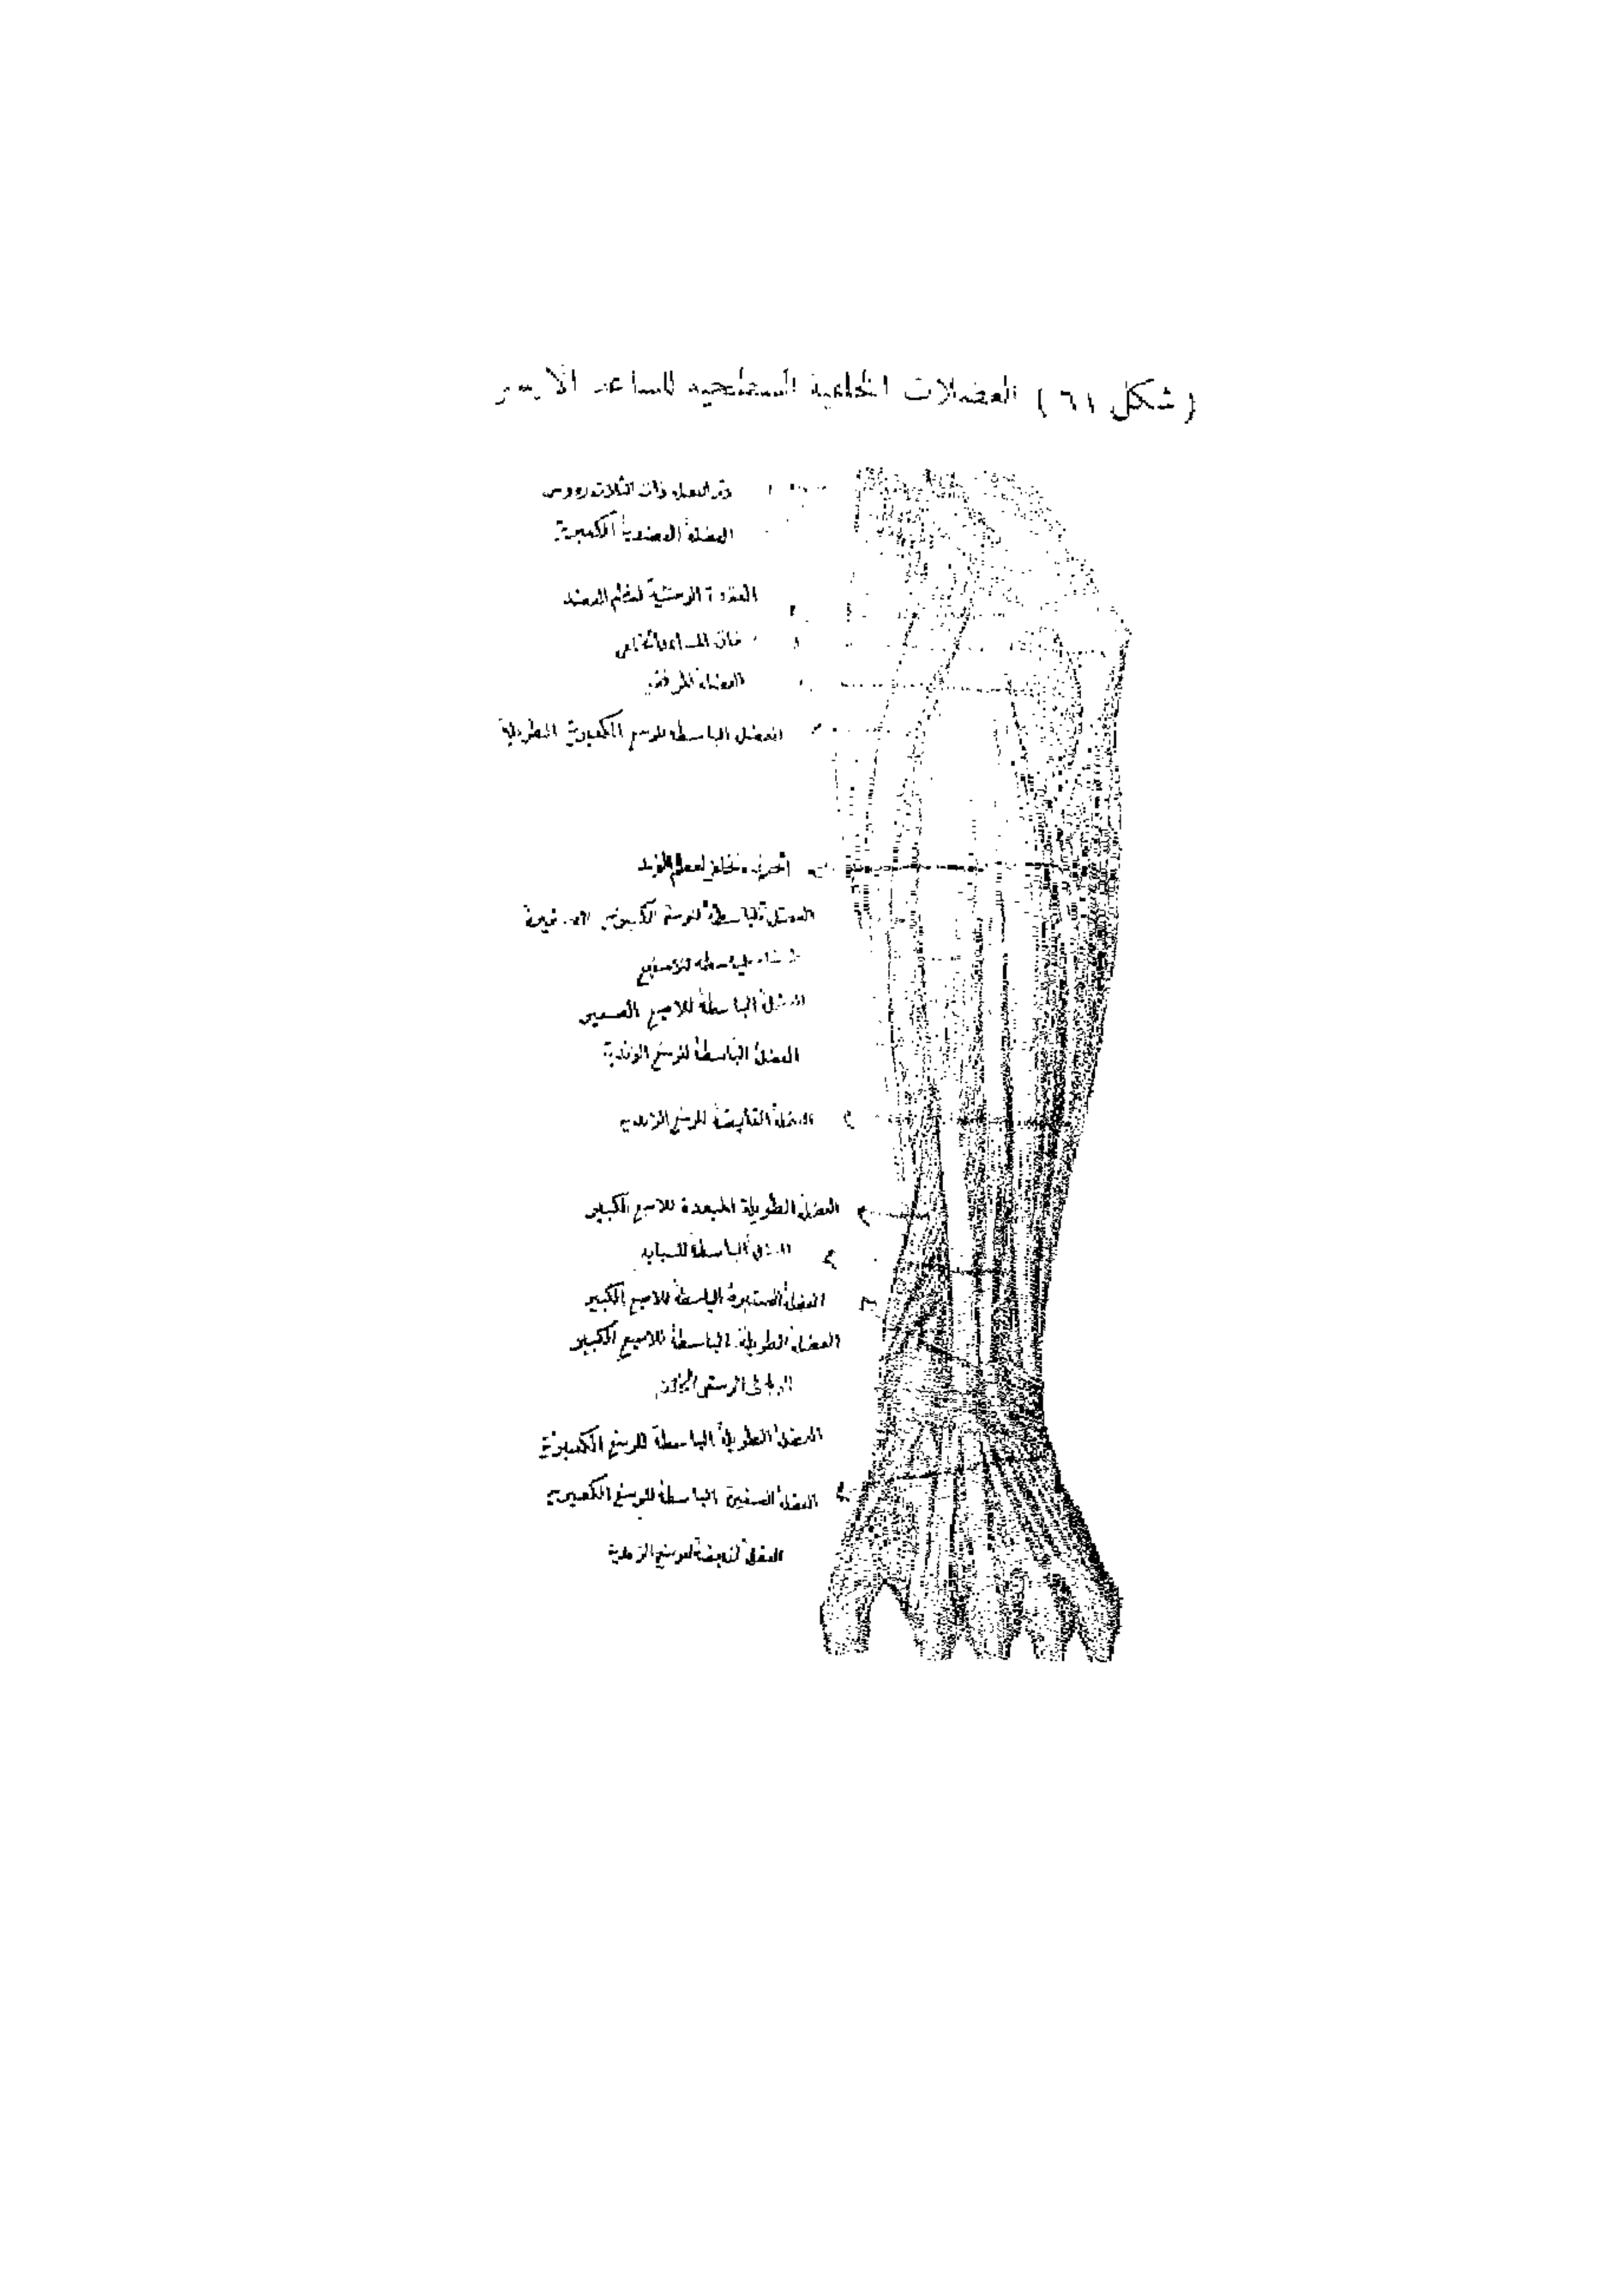 (شكل ٦١) العضلات الخلفية السطحية للساعد الايسر
وتر العضلة ذات الثلاث رووس
العضلة العضدية الكعبرية
العقدة الوحشية لعظم العضد
العضلة المرفقية
العضلة الباسطة للرسغ الكعبرية الطويلة
لعظم الزند
العضلة الباسطة للرسغ الكعبرية
باسطة للاصابع
العضلة الباسطة للاصبع الصغير
العضلة الباسطة للرسغ الزندية
العضلة القابضة للرسغ الزندية
العضلة الطويلة المبعدة للاصبع الكبير
العضلة الباسطة للسبابة
العضلة الباسطة للاصبع الكبير
العضلة الطويلة الباسطة للاصبع الكبير
الرسغي
العضلة الطويلة الباسطة للرسغ الكعبرية
العضلة الصغيرة الباسطة للرسغ الكعبرية
العضلة القابضة للرسغ الزندية